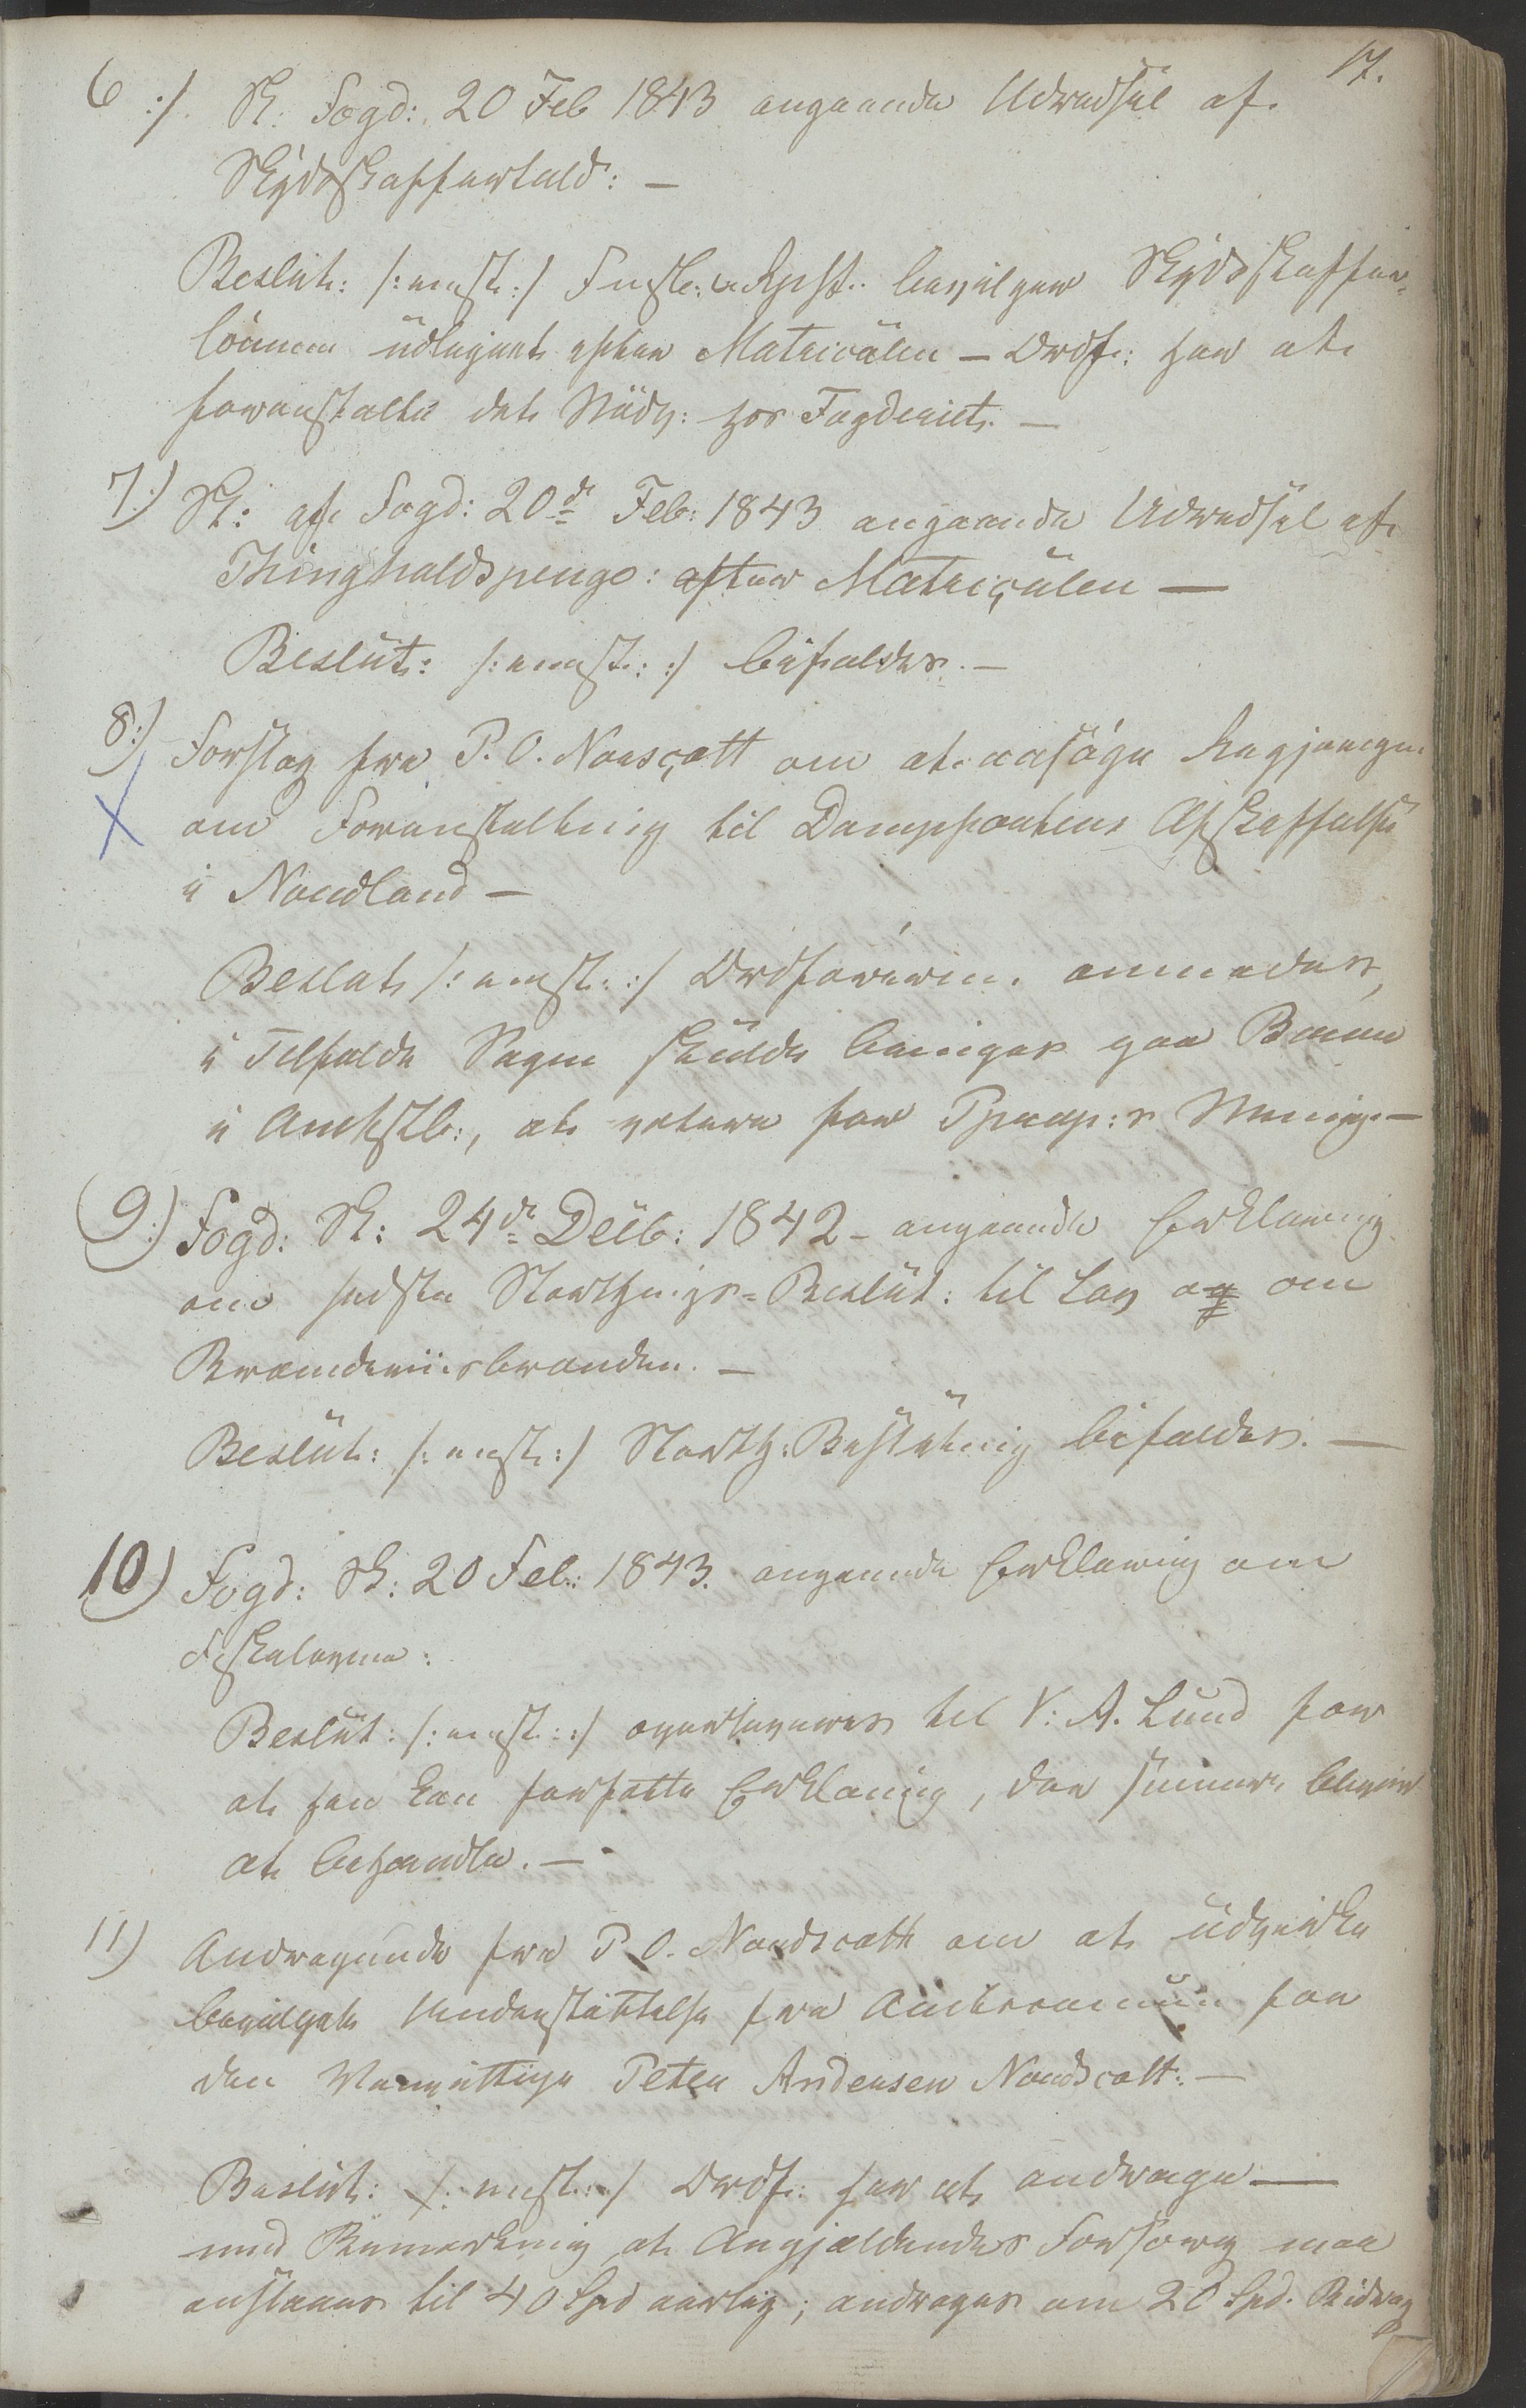 17.
6 :/. Sk: Fogd: 20 Feb 1843 angaaende Udredsel af
Skydsskafferhold: —
Beslut: /: enst: :/ Fmsk: & Rpst: bevilger Skydsskaffer-
lönnen udlignet efter Matriculen — Ordf: har at
foranstalte det Nödv: hos Fogderiet. —
7:/ Sk: af Fogd: 20de Feb: 1843 angaaende Udredsel af
Thingholdspenge: efter Matriculen —
Beslut: /: enst: :/ bifaldes. —
8:/ Forslag fra P. O. Norscott om at ansöge Regjeringen
om Foranstaltning til Dampfartens Afskaffelse
i Nordland —
Beslut /: enst: :/ Ordföreren anmodes,
i Tilfælde Sagen skulde bringes paa Banen
i Amtstb:, at votere for Prop:s Mening —
9:/ Fogd: Sk: 24de Decb: 1842 - angaaende Erklæring
om sidste Storthings-Beslut: til Lov og om
Brændeviinsbrænden. —
Beslut: /: enst: :/ Storth: Beslutning bifaldes. —
10) Fogd: Sk: 20 Feb: 1843. angaaende Erklæring om
Skoleloven:
Beslut: /: enst: :/ overleveres til V: A. Lund for
at han kan forfatte Erklæring, der senere bliver
at behandle. —
11) Andragende fra P. O. Nordscott om at udvirke
bevilget Understöttelse fra Amtscommun for
den Vanvittige Peter Andersen Nordscott: —
Beslut: /: enst: :/ Ordf: har at andrage —
med Bemærkning, at Angjældendes Forsörg maa
anslaaes til 40 Spd aarlig; andrages om 20 Spd. Bidrag